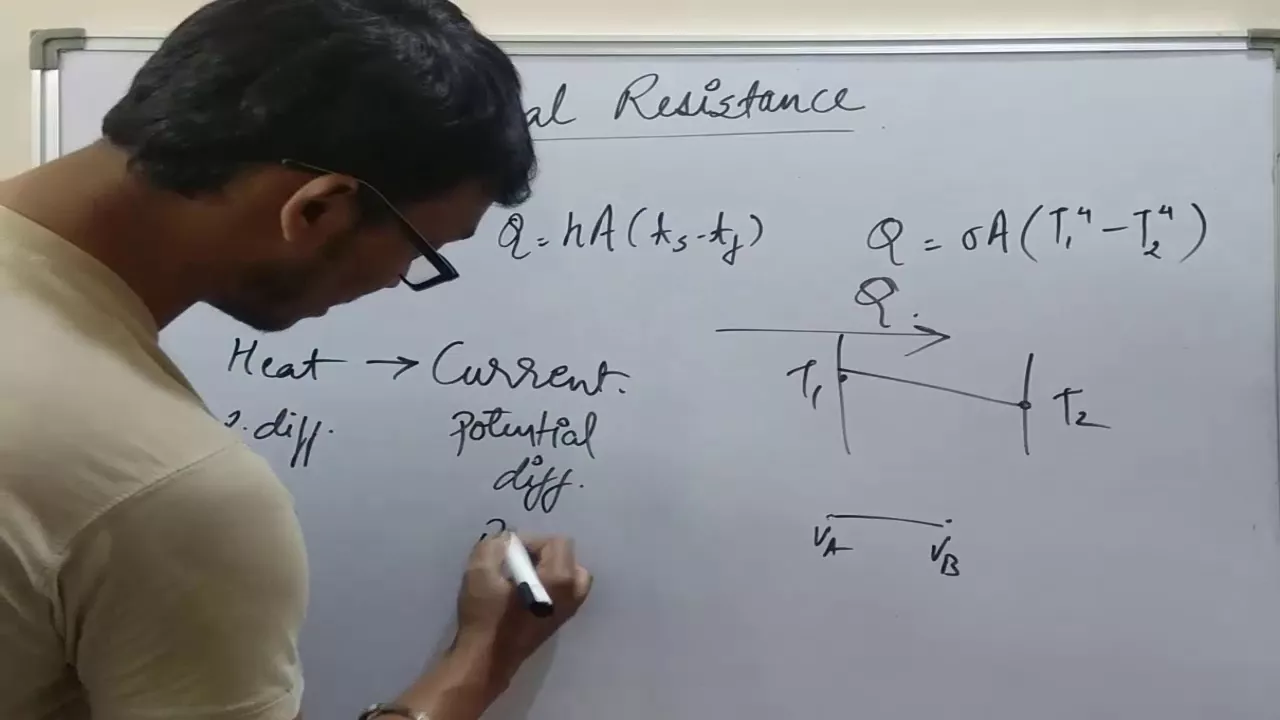 al Resistance
Q = hA(ts-tf) Q = σA(T₁⁴-T₂⁴)
Q.
Heat → Current.
T₁
T₂
diff. Potential
diff.
VA VB